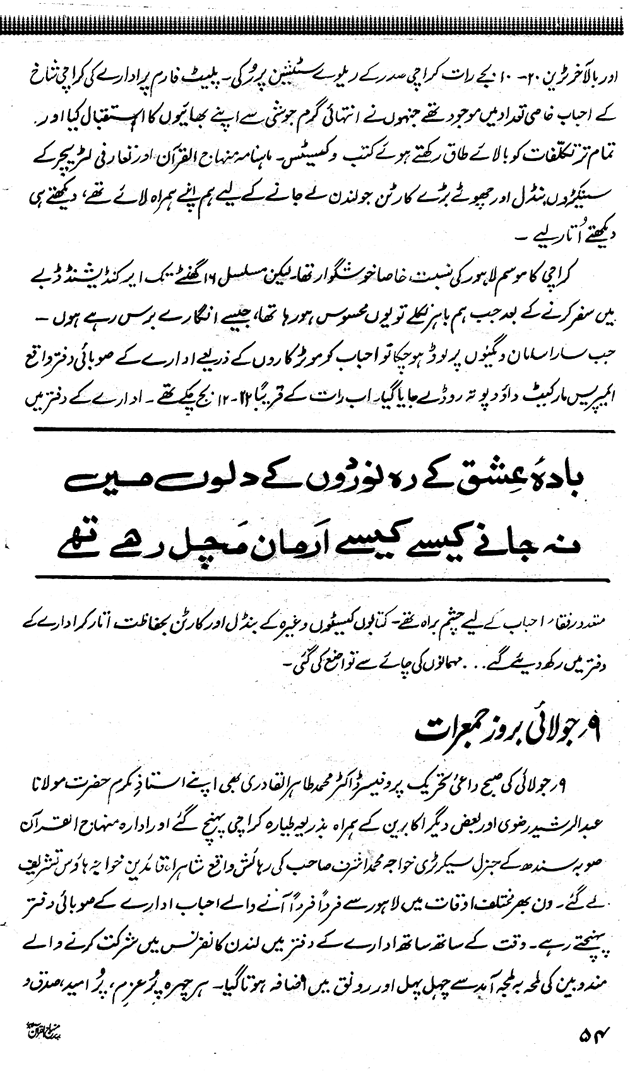 اور بالآخر ٹرین ۲۰-۱۰ بجے رات کراچی صدر کے ریلوے سٹیشن پر رکی۔ پلیٹ فارم پر ادارے کی کراچی شاخ
کے احباب خاصی تعداد میں موجود تھے جنہوں نے انتہائی گرم جوشی سے اپنے بھائیوں کا استقبال کیا اور
تمام تر تکلفات کو بالائے طاق رکھتے ہوئے کتب و کیسٹس۔ ماہنامہ منہاج القرآن اور تعارفی لٹریچر کے
سینکڑوں بنڈل اور چھوٹے بڑے کارٹن جو لندن لے جانے کے لیے ہم اپنے ہمراہ لائے تھے، دیکھتے ہی
دیکھتے اُتار لیے۔
کراچی کا موسم لاہور کی نسبت خاصا خوشگوار تھا۔ لیکن مسلسل ۱۶ گھنٹے تک ایر کنڈیشنڈ ڈبے
میں سفر کرنے کے بعد جب ہم باہر نکلے تو یوں محسوس ہو رہا تھا، جیسے انگارے برس رہے ہوں۔
جب سارا سامان ویگنوں پر لوڈ ہو چکا تو احباب کو موٹر کاروں کے ذریعے ادارے کے صوبائی دفتر واقع
ایمپریس مارکیٹ داؤد پوتہ روڈ لے جایا گیا۔ اب رات کے قریباً ۱۲-۱۲ بج چکے تھے۔ ادارے کے دفتر میں
بادہٴ عِشق کے رہ نوَردُوں کے دلوں میں
نہ جانے کیسے کیسے اَرمان مَچل رہے تھے
متعدد رفقاء احباب کے لیے چشم براہ تھے۔ کتابوں کیسٹوں وغیرہ کے بنڈل اور کارٹن بحفاظت اتار کر ادارے کے
دفتر میں رکھ دیئے گئے ... مہمانوں کی چائے سے تواضع کی گئی۔
۹ر جولائی بروز جمعرات
۹ر جولائی کی صبح داعیٔ تحریک پروفیسر ڈاکٹر محمد طاہر القادری بھی اپنے استاذِ مکرم حضرت مولانا
عبدالرشید رضوی اور بعض دیگر اکابرین کے ہمراہ بذریعہ طیارہ کراچی پہنچ گئے اور ادارہ منہاج القرآن
صوبہ سندھ کے جنرل سیکرٹری خواجہ محمد اشرف صاحب کی رہائش واقع شاہراہ قائدین خواجہ ہاؤس تشریف
لے گئے۔ دن بھر مختلف اوقات میں لاہور سے فرداً فرداً آنے والے احباب ادارے کے صوبائی دفتر
پہنچتے رہے۔ وقت کے ساتھ ساتھ ادارے کے دفتر میں لندن کانفرنس میں شرکت کرنے والے
مندوبین کی لمحہ بہ لمحہ آمد سے چہل پہل اور رونق میں اضافہ ہوتا گیا۔ ہر چہرہ پُر عزم، پُر امید، صدق و
۵۴